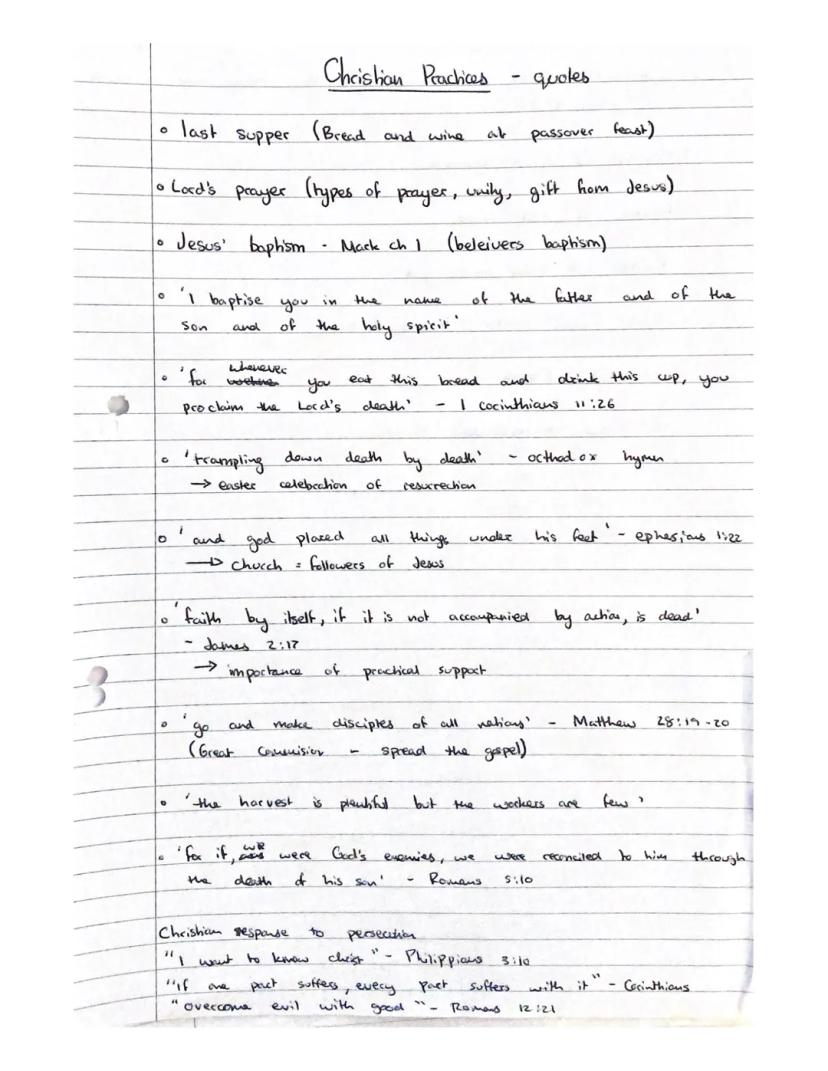 Christian Practices - quotes
∘ last supper (Bread and wine at passover feast)
∘ Lord's prayer (types of prayer, unity, gift from Jesus)
∘ Jesus' baptism - Mark ch 1 (beleivers baptism)
∘ 'I baptise you in the name of the father and of the
son and of the holy spirit'
whenever
∘ 'for you eat this bread and drink this cup, you
proclaim the Lord's death' - 1 Corinthians 11:26
∘ 'trampling down death by death' - orthodox hymn
→ easter celebration of resurrection
∘ 'and god placed all things under his feet' - ephesians 1:22
→ church = followers of Jesus
∘ 'faith by itself, if it is not accompanied by action, is dead'
- James 2:17
→ importance of practical support
∘ 'go and make disciples of all nations' - Matthew 28:19-20
(Great Commision - spread the gospel)
∘ 'the harvest is plentiful but the workers are few'
we
∘ 'for if, were God's enemies, we were reconciled to him through
the death of his son' - Romans 5:10
Christian response to persecution
"I want to know christ" - Philippians 3:10
"if one part suffers, every part suffers with it" - Corinthians
"overcome evil with good" - Romans 12:21